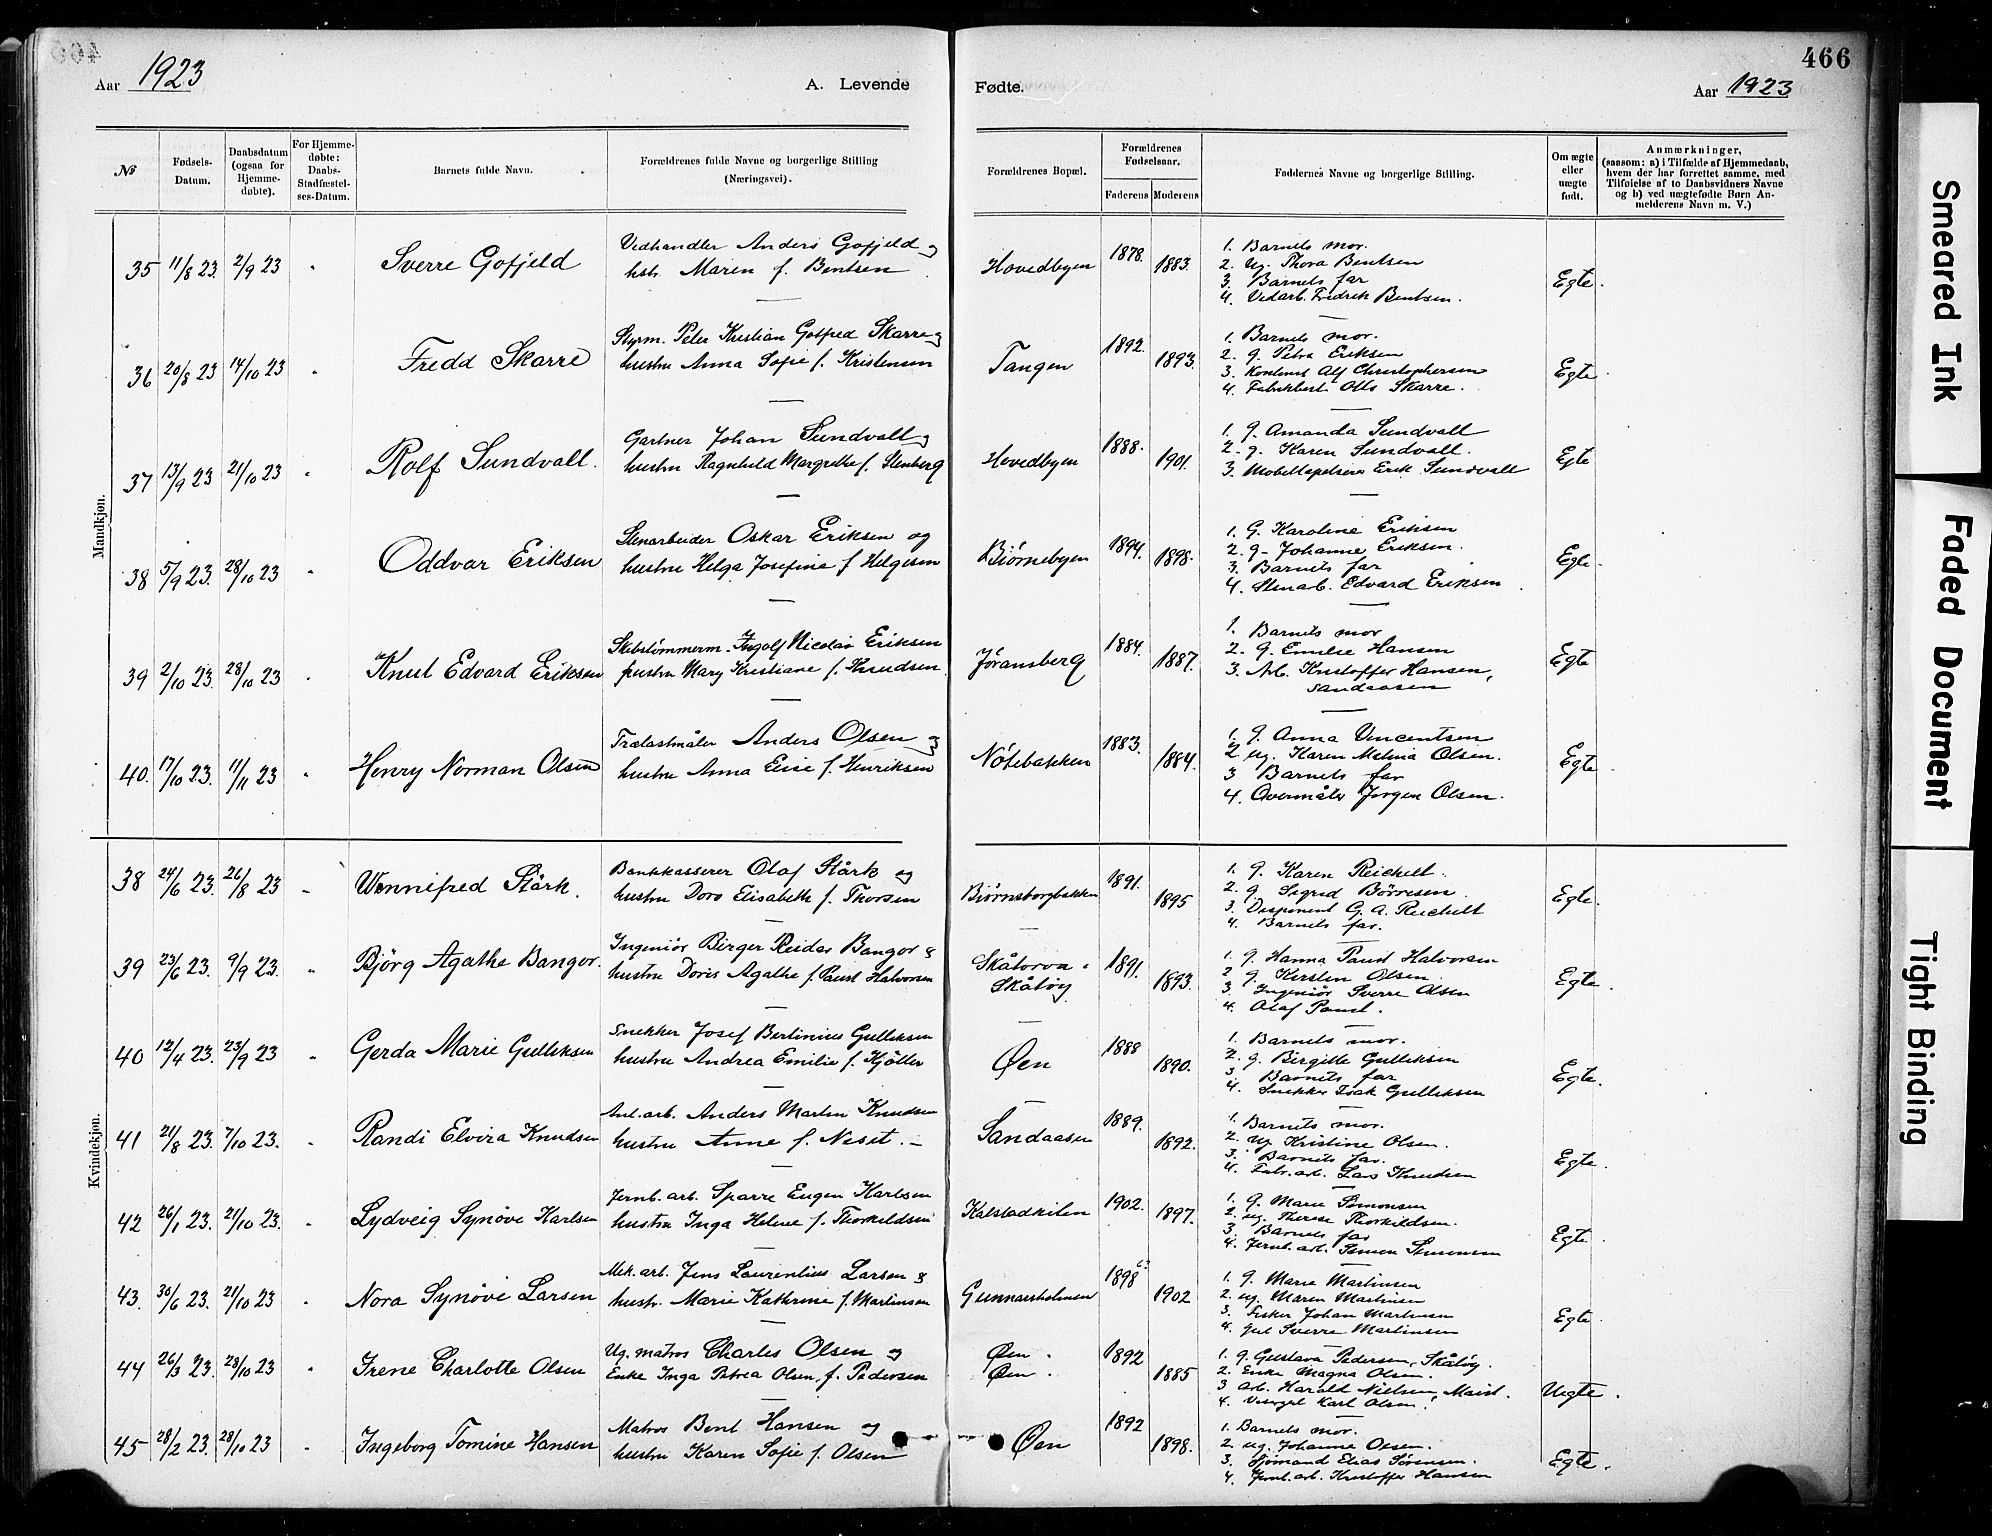 466
Aar 1923
A. Levende Fødte.
Aar 1923
№
Fødsels-Datum.
Daabsdatum (ogsaa for Hjemme-døbte).
For Hjemme-døbte: Daabs-Stadfæstel-ses-Datum.
Barnets fulde Navn.
Forældrenes fulde Navne og borgerlige Stilling (Næringsvei).
Forældrenes Bopæl.
Forældrenes Fødselsaar.
Faderens Moderens
Faddernes Navne og borgerlige Stilling.
Om ægte eller uægte født.
Anmærkninger, (saasom: a) i Tilfælde af Hjemmedaab, hvem der har forrettet samme, med Tilføielse af to Daabsvidners Navne og b) ved uægtefødte Børn Anmelderens Navn m. V.)
Mandkjøn.
35 11/8 23. 2/9 23 " Sverre Gofjeld
Vedhandler Anders Gofjeld og
hstr. Maren f. Bentsen
Hovedbyen 1878. 1883.
1. Barnets mor.
2. ug. Thora Bentsen
3. Barnets far
4. Vedarb. Fredrik Bentsen.
Egte.
36 20/8 23 14/10 23 " Fredd Skarre
Styrm. Peter Kristian Gotfred Skarre og
hustru Anna Sofie f. Kristensen
Tangen 1892. 1893.
1. Barnets mor.
2. g. Petra Eriksen
3. Alf Christophersen
4. Otto Skarre.
Egte
37 13/9 23 21/10 23 " Rolf Sundvall.
Gartner Johan Sundvall og
hustru Ragnhild Margrethe f. Stenberg
Hovedbyen 1888. 1901.
1. g. Amanda Sundvall
2. g. Karen Sundvall.
3. Møbeltapetserer Erik Sundvall
Egte
38 5/9 23. 28/10 23 " Oddvar Eriksen
Stenarbeider Oskar Eriksen og
hustru Helga Josefine f. Helgesen
Bjørnebyen 1894. 1898.
1. G. Karoline Eriksen
2. g. Johanne Eriksen.
3. Barnets far
4. Stenarb. Edvard Eriksen
Egte
39 2/10 23. 28/10 23 " Knut Edvard Eriksen
Skibstømmerm. Ingolf Nicolai Eriksen
hustru Mary Kristiane f. Knudsen
Jøransberg 1884. 1887.
1. Barnets mor
2. g. Emelie Hansen
3. Arb. Kristoffer Hansen,
Sandaasen
Egte
40. 17/10 23. 11/11 23 " Henry Norman Olsen
Trælastmåler Anders Olsen og
hustru Anna Elise f. Henriksen
Nötebakken 1883. 1884.
1. g. Anna Vincentsen
2 ug. Karen Melina Olsen.
3 Barnets far
4. Overmåler Jørgen Olsen.
Egte
Kvindekjøn.
38 24/6 23. 26/8 23 " Wennifred Stårk.
Bankkasserer Olaf Stårk og
hustru Doro Elisabeth f. Thorsen
Bjørnsborgbakken 1891. 1895
1. g. Karen Reichelt.
2. g. Sigrid Börresen
3. Disponent G. A. Reichelt
4. Barnets far.
Egte.
39 23/6 23. 9/9 23. " Björg Agathe Bangor.
Ingeniör Birger Reidar Bangor &
hustru Doris Agathe f. Paust Halvorsen
Skåtorva
Skåtöy 1891. 1893.
1. g. Hanna Paust Halvorsen
2 g. Kirsten Olsen.
3. Ingeniör Sverre Olsen
4. Olaf Paust.
Egte.
40 12/4 23. 23/9 23 " Gerda Marie Gulliksen
Snekker Josef Bertinius Gulliksen
hustru Andrea Emilie f. Kjöller
Øen 1888 1890.
1. Barnets mor.
2. g. Birgitte Gulliksen
3. Barnets far
4. Snekker Isak Gulliksen
Egte.
41 21/8 23. 7/10 23. " Randi Elvira Knudsen
Anl.arb. Anders Martin Knudsen
hustru Anne f. Neset. –
Sandaasen 1889. 1892.
1. Barnets mor.
2. ug. Kristine Olsen.
3. Barnets far.
4. Fabr.arb. Lars Knudsen
Egte.
42 26/1 23. 21/10 23. " Lydveig Synöve Karlsen
Jernb. arb. Sparre Eugen Karlsen
hustru Inga Helene f. Thorkildsen
Kalstadkilen 1902. 1897.
1. g. Marie Simonsen
2. ug. Therese Thorkildsen.
3 Barnets far
4. Jernb. arb. Simon Simonsen
Egte.
43. 30/6 23. 21/10 23 " Nora Synöve Larsen
Mek. arb. Jens Laurentius Larsen &
hustr. Marie Kathrine f. Martinsen
Gunnarsholmen 1898 1902
1 g. Marie Martinsen
2. ug. Maren Martinsen
3. Fisker Johan Martinsen
4. Gut Sverre Martinsen
Egte
44 26/3 23. 28/10 23 " Irene Charlotte Olsen
Ug. matros Charles Olsen og
Enke Inga Petrea Olsen, f. Pedersen
Øen.
Øen. 1892 1885
1. g. Gustava Pedersen, Skåtöy.
2. Enke Magna Olsen.
3 arb. Harald Nielsen,
4. Karl Olsen.
Uegte.
45 28/2 23. 28/10 23 " Ingeborg Tomine Hansen
Matros Bent Hansen og
hustru Karen Sofie f. Olsen
Øen 1892 1898.
1. Barnets mor.
2. ug. Johanne Olsen.
3. Sjömand Elias Sørensen.
4. Jernb. arb. Kristoffer Hansen
Egte.
Smeared Ink
Faded Document
Tight Binding